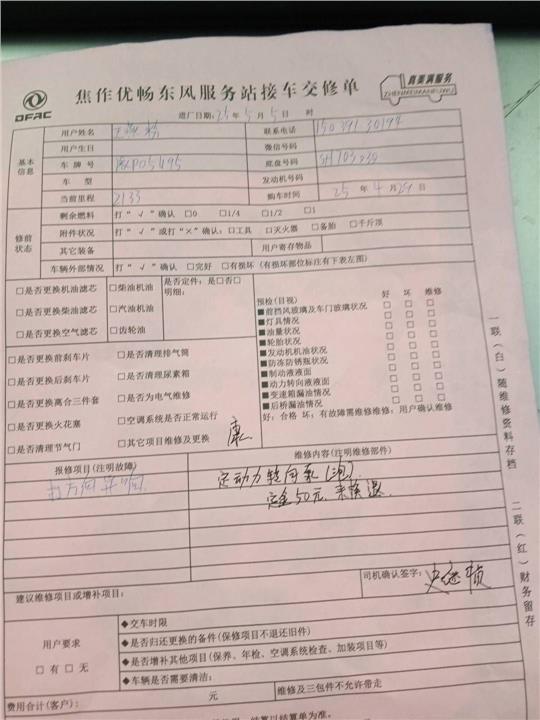 DFAC
焦作优畅东风服务站接车交修单
真美满服务
ZHENMEIMANFUWU
进厂日期:25年5月5日 时
基本信息
用户姓名
联系电话
用户生日
微信号码
车牌号
底盘号码
车型
发动机号码
当前里程 2133
购车时间 25年4月29日
修前状态
剩余燃料 打“√”确认 □0 □1/4 □1/2 □1
附件状况 打“√”或打“×”确认:□工具 □灭火器 □备胎 □千斤顶
其它装备
用户寄存物品
车辆外部情况 打“√”确认 □完好 □有损坏(有损坏部位标注有下表左图)
□是否更换机油滤芯 □柴油机油 是否定件:是□否□
□是否更换柴油滤芯 □汽油机油 明细:
□是否更换空气滤芯 □齿轮油
预检(目视) 好 坏 维修
■前挡风玻璃及车门玻璃状况 □ □ □
■灯具情况 □ □ □
■油量状况 □ □ □
■轮胎状况 □ □ □
■发动机机油状况 □ □ □
■防冻防锈瓶状况 □ □ □
■制动液液面 □ □ □
■动力转向液液面 □ □ □
■变速箱漏油情况 □ □ □
■后桥漏油情况 □ □ □
好:合格 坏:有故障需维修维修:用户确认维修
□是否更换前刹车片 □是否清理排气筒
□是否更换后刹车片 □是否清理尿素箱
□是否更换离合三件套 □是否为电气维修
□是否更换火花塞 □空调系统是否正常运行
□是否清理节气门 □其它项目维修及更换
报修项目(注明故障)
维修内容(注明维修部件)
打方向异响
定动力转向泵
定金50元.来换退
建议维修项目或增补项目:
司机确认签字:
用户要求
□有 □无
◆交车时限
◆是否归还更换的备件(保修项目不退还旧件)
◆是否增补其他项目(保养、年检、空调系统检查、加装项目等)
◆车辆是否需要清洁:
费用合计(客户): 元
维修及三包件不允许带走
结算以结算单为准。
一联(白)随维修资料存档
二联(红)财务留存